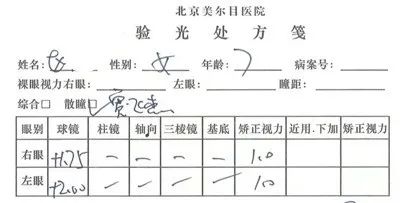 北京美尔目医院
验光处方笺
姓名: 性别: 女 年龄: 7 病案号:
裸眼视力右眼: 左眼: 瞳距:
综合□ 散瞳□
眼别 球镜 柱镜 轴向 三棱镜 基底 矫正视力 近用.下加 矫正视力
右眼 +1.75 — — — — 1.0
左眼 +2.00 — — — — 1.0